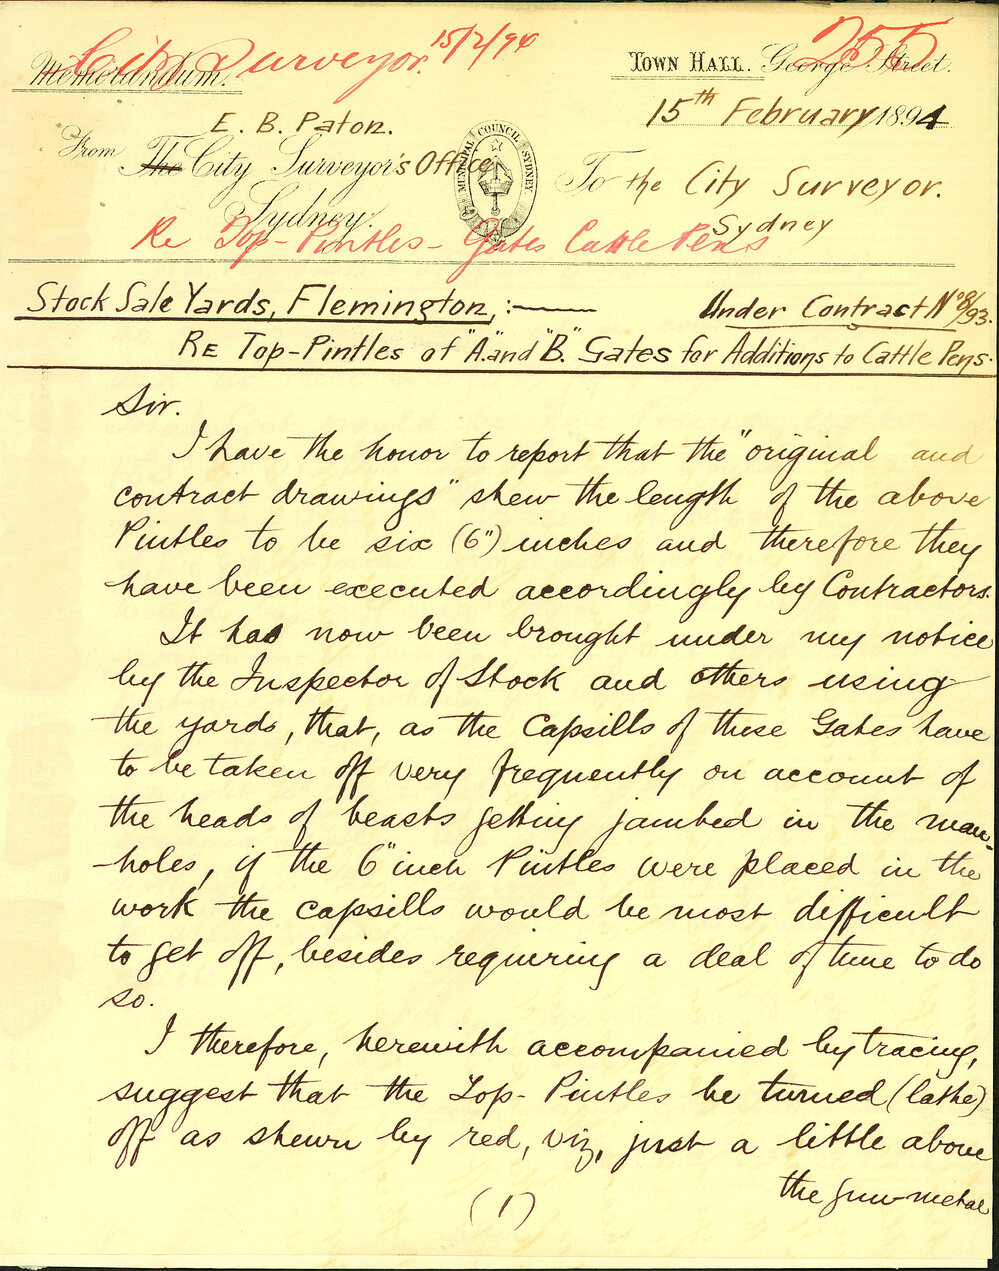 City Surveyor. 15/2/94
255
Memorandum.
Town Hall. George Street.
15th February 1894
E. B. Paton.
From The City Surveyor's Office
Sydney.
MUNICIPAL COUNCIL SYDNEY
To the City Surveyor.
Sydney
Re Top-Pintles - Gates Cattle Pens
Stock Sale Yards, Flemington, :—
Under Contract No 8/93.
Re Top-Pintles of "A." and "B." Gates for Additions to Cattle Pens.
Sir.
I have the honor to report that the "original and
contract drawings" shew the length of the above
Pintles to be six (6") inches and therefore they
have been executed accordingly by Contractors.
It has now been brought under my notice
by the Inspector of Stock and others using
the yards, that, as the Capsills of these Gates have
to be taken off very frequently on account of
the heads of beasts getting jambed in the man-
-holes, if the 6" inch Pintles were placed in the
work the capsills would be most difficult
to get off, besides requiring a deal of time to do
so.
I therefore, herewith accompanied by tracing,
suggest that the Top-Pintles be turned (lathe)
off as shewn by red, viz, just a little above
the gun-metal
(1)